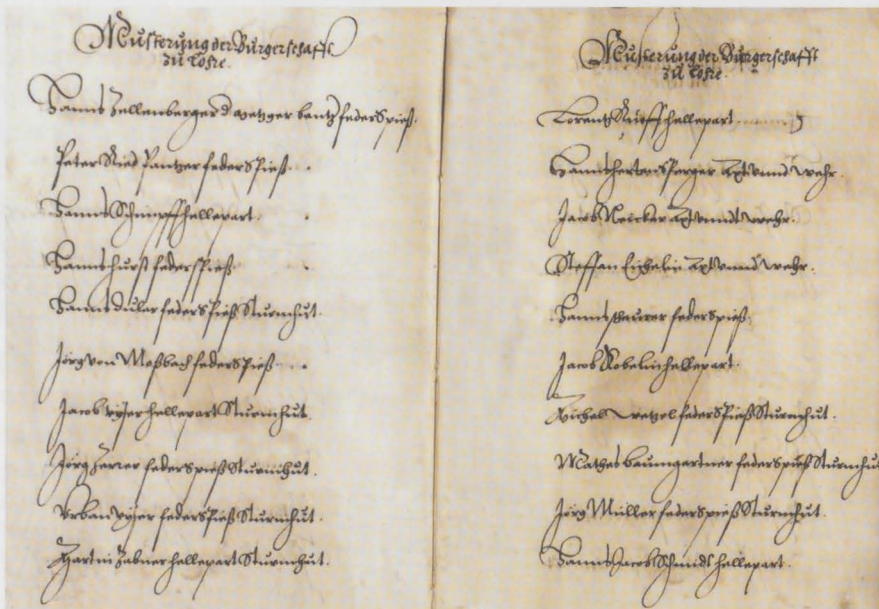 Musterung der Burgerschafft
zu Lohre.
Hanns Zellenberger d metzger bantz federspieß.
Peter Ried Pantzer federspieß.
Hanns Schimpff hellepart.
Hanns hurst federspieß
Hanns duler federspieß Sturmhut.
Jörg von Moßbach federspieß.
Jacob hellepart Sturmhut.
Jörg federspieß Sturmhut.
Urban federspieß Sturmhut.
Martin Zabner hellepart Sturmhut.
Musterung der Burgerschafft
zu Lohre.
Lorentz Rueff hellepart.
Hanns Axt unnd wehr.
Jacob Axt unnd wehr.
Steffan Eichelin Axt unnd wehr.
Hanns federspieß.
Jacob Kobelin hellepart.
Michel Wetzel federspieß Sturmhut.
Mathes baumgartner federspieß Sturmhut
Jörg Müller federspieß Sturmhut.
Hanns Jacob Schmidt hellepart.